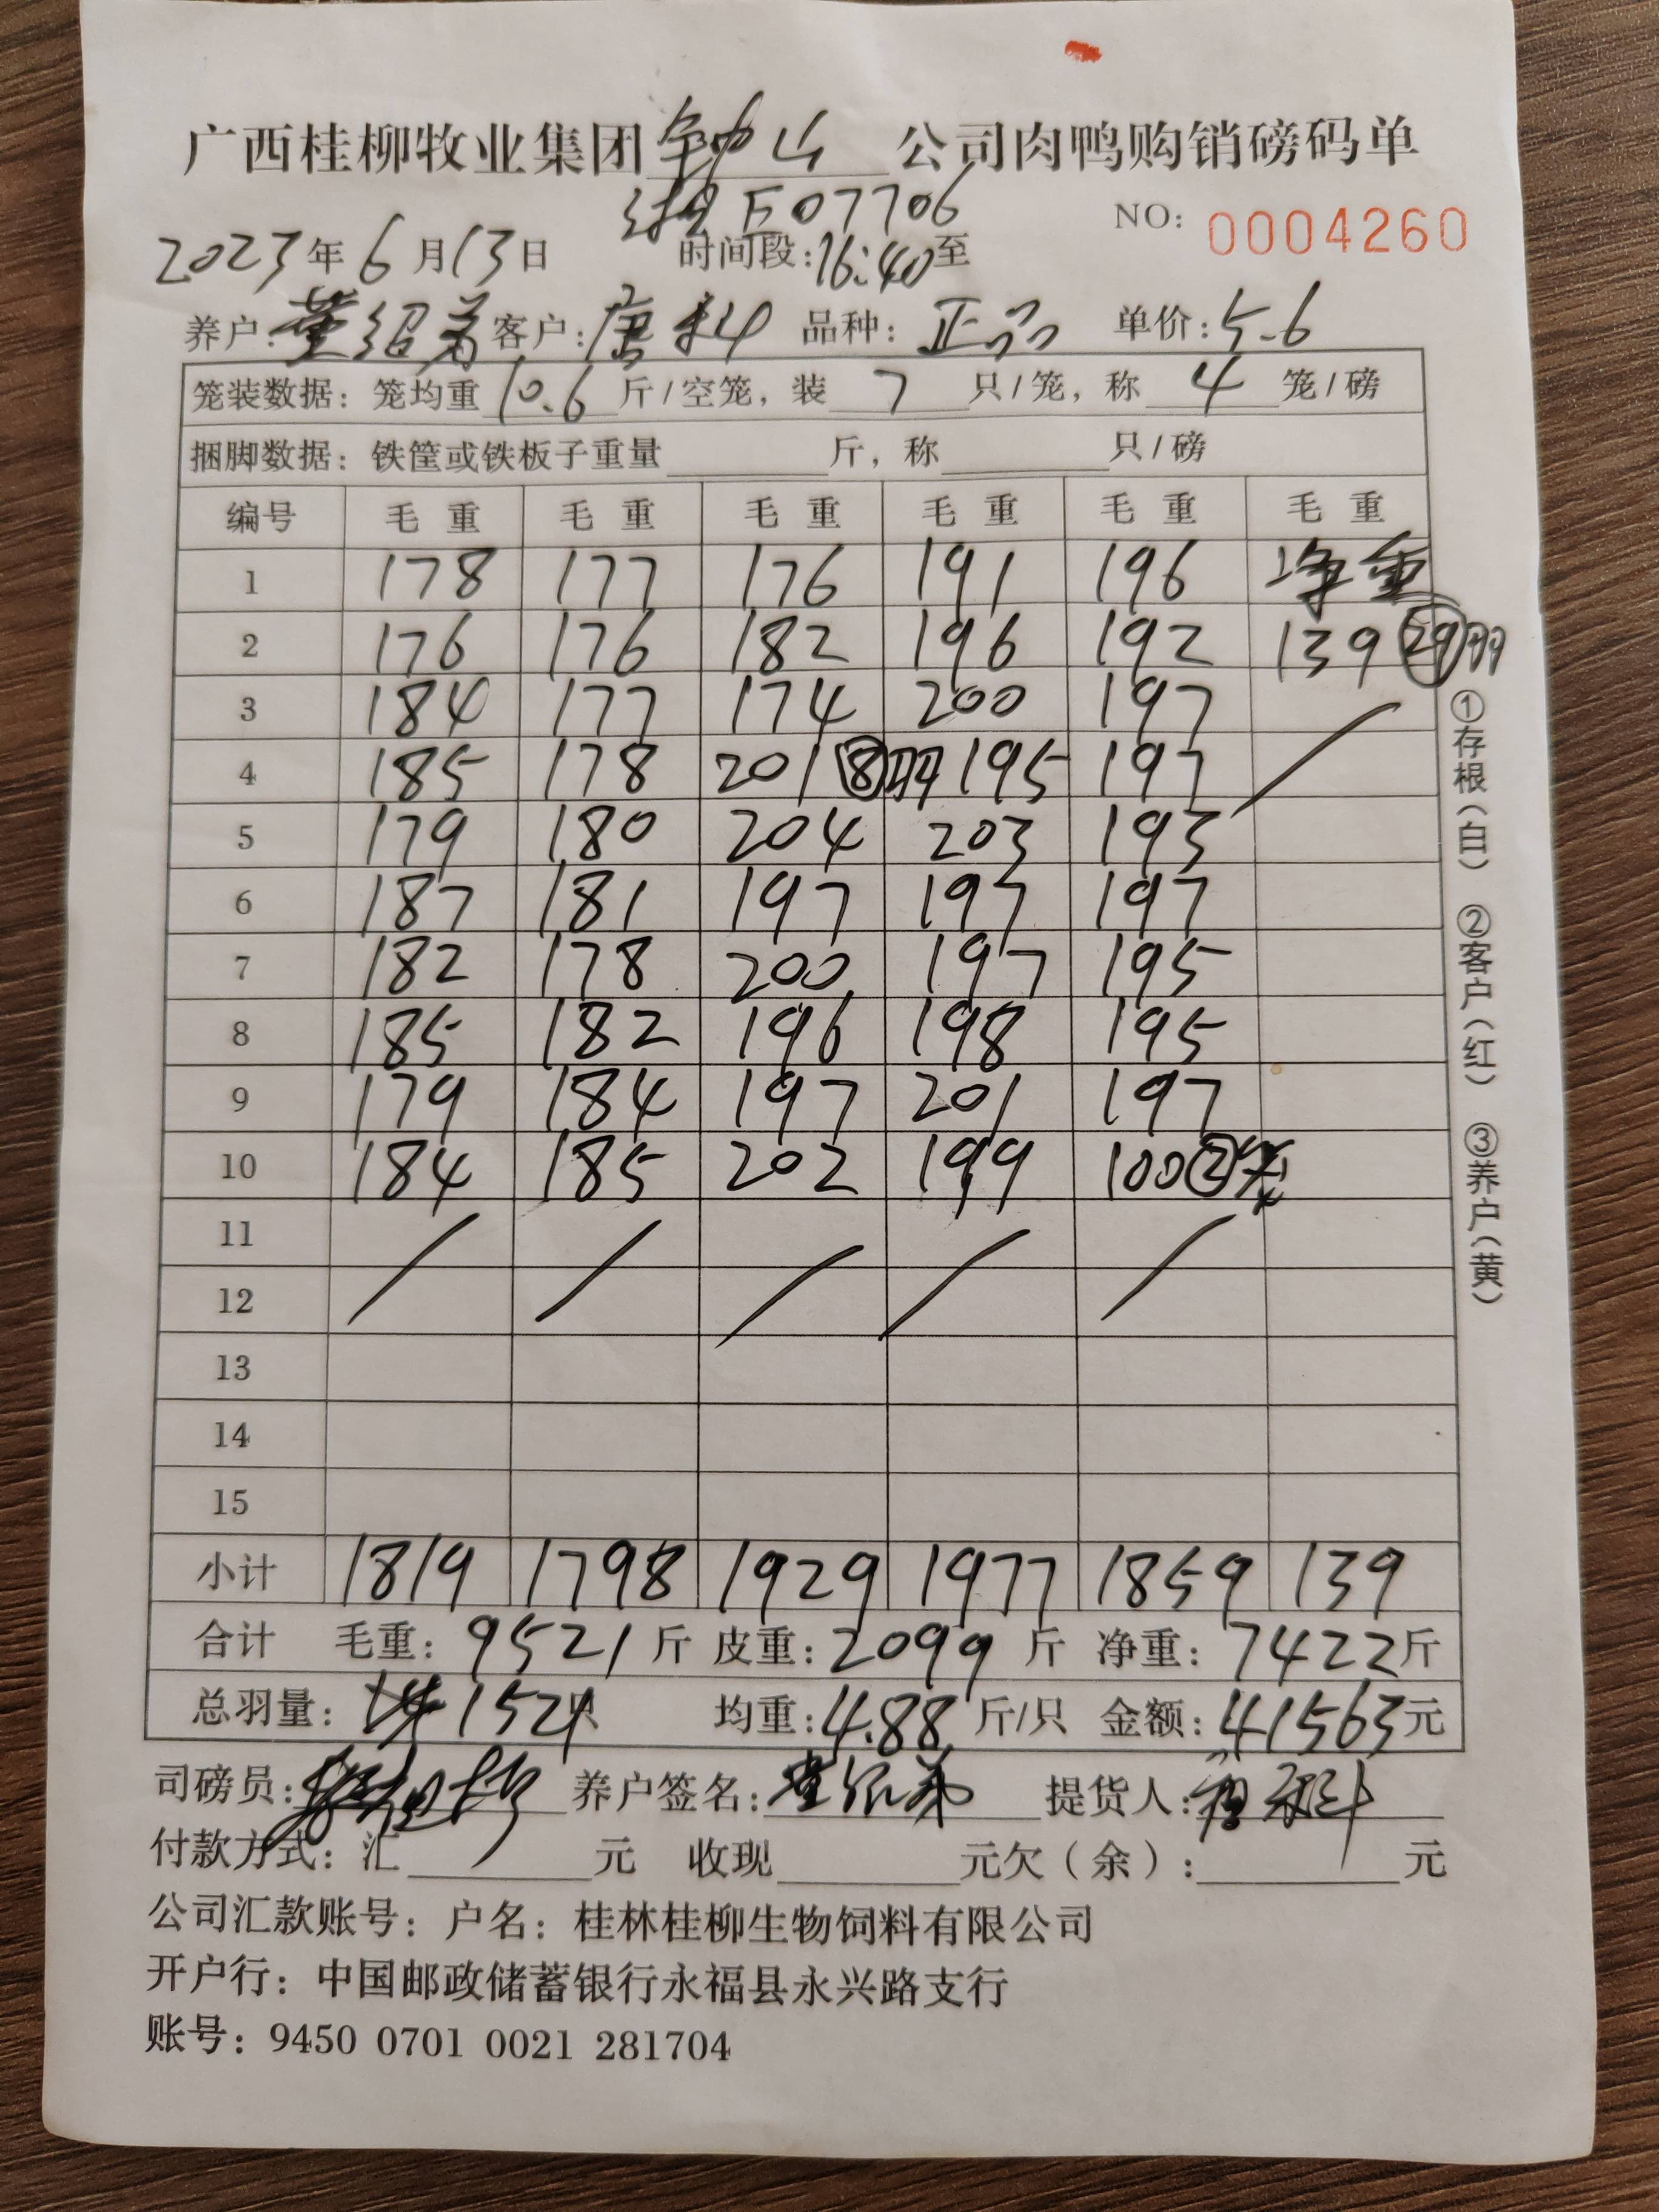 广西桂柳牧业集团钟山公司肉鸭购销磅码单
湘E07706
NO: 0004260
2023年6月13日 时间段:16:40至
养户:董绍 客户:唐科 品种:正品 单价:5.6
笼装数据:笼均重10.6斤/空笼,装7只/笼,称4笼/磅
捆脚数据:铁筐或铁板子重量 斤,称 只/磅
编号 毛重 毛重 毛重 毛重 毛重 毛重
1 178 177 176 191 196 净重
2 176 176 182 196 192 139 29羽
3 184 177 174 200 197
4 185 178 201 ⑧羽 195 197
5 179 180 204 203 193
6 187 181 197 197 197
7 182 178 200 197 195
8 185 182 196 198 195
9 179 184 197 201 197
10 184 185 202 199 100②笼
11
12
13
14
15
小计 1819 1798 1929 1977 1859 139
合计 毛重:9521斤 皮重:2099斤 净重:7422斤
总羽量:1521只 均重:4.88斤/只 金额:41563元
司磅员: 养户签名:董绍 提货人:唐科
付款方式:汇 元 收现 元欠(余): 元
公司汇款账号:户名:桂林桂柳生物饲料有限公司
开户行:中国邮政储蓄银行永福县永兴路支行
账号:9450 0701 0021 281704
①存根(白) ②客户(红) ③养户(黄)